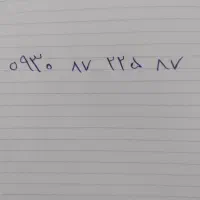 ۰۹۳۰ ۸۷ ۲۲۵ ۸۷